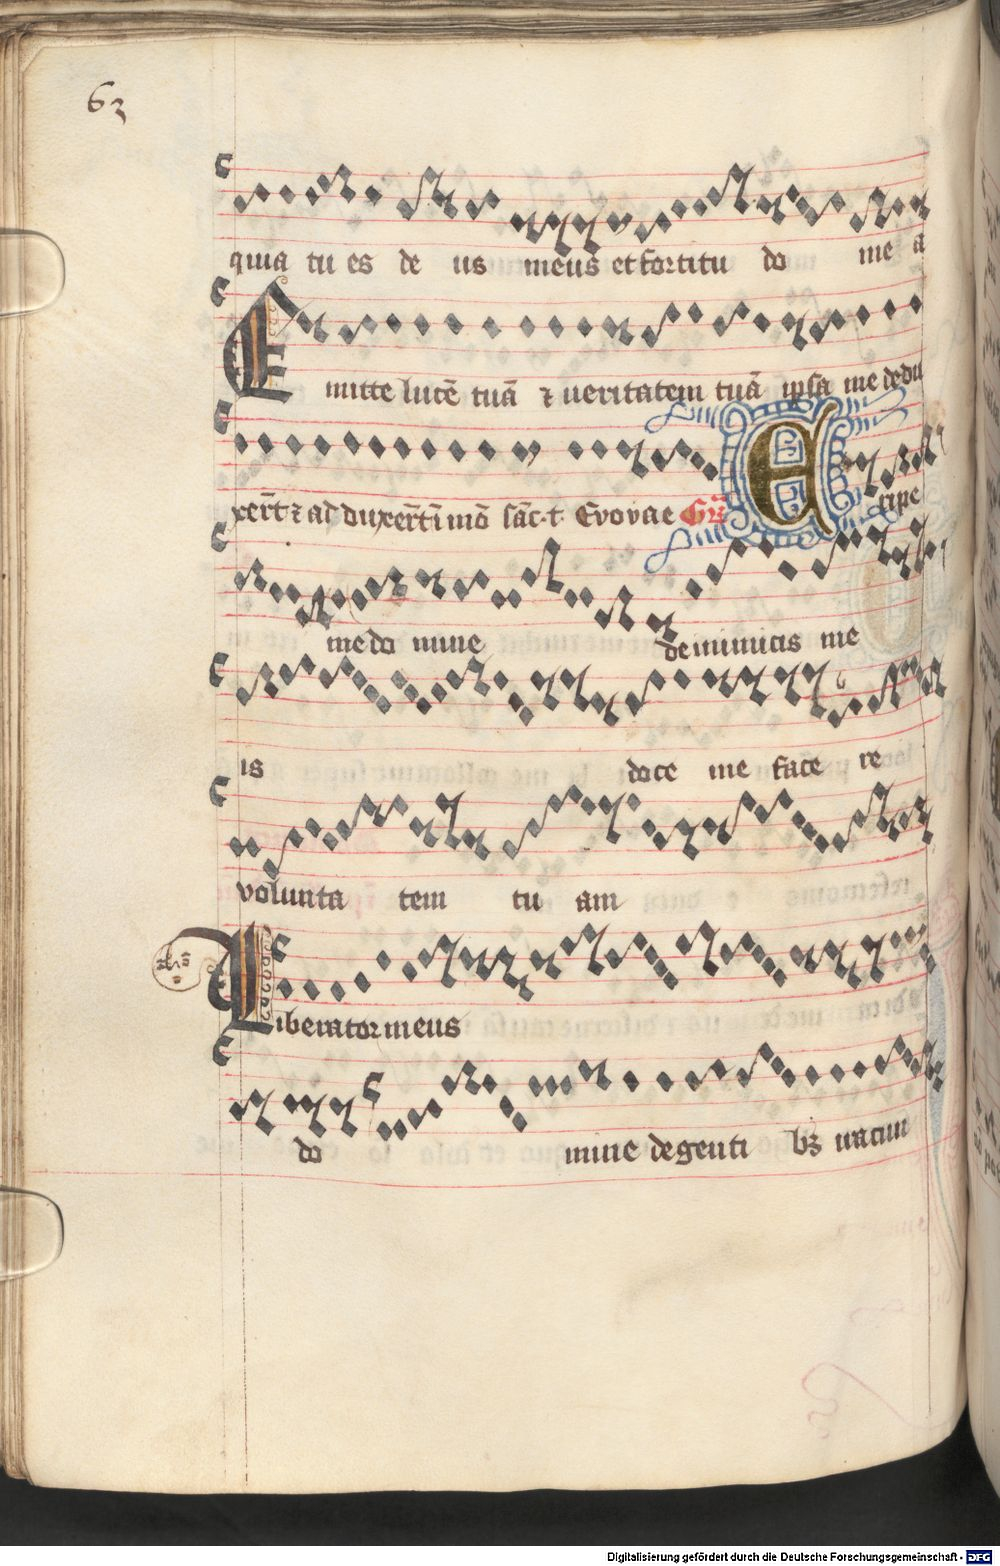 63
quia tu es de us meus et fortitu do me a
Emitte lucē tuā ⁊ ueritatem tuā ipsa me dedu
xer̄t ⁊ ad duxer̄t ī mō sāc. t. Evovae Gr̄ Eripe
me do mine de inimicis me
is doce me face re
volunta tem tu am
Liberator meus
do mine de genti bꝫ
Digitalisierung gefördert durch die Deutsche Forschungsgemeinschaft - DFG